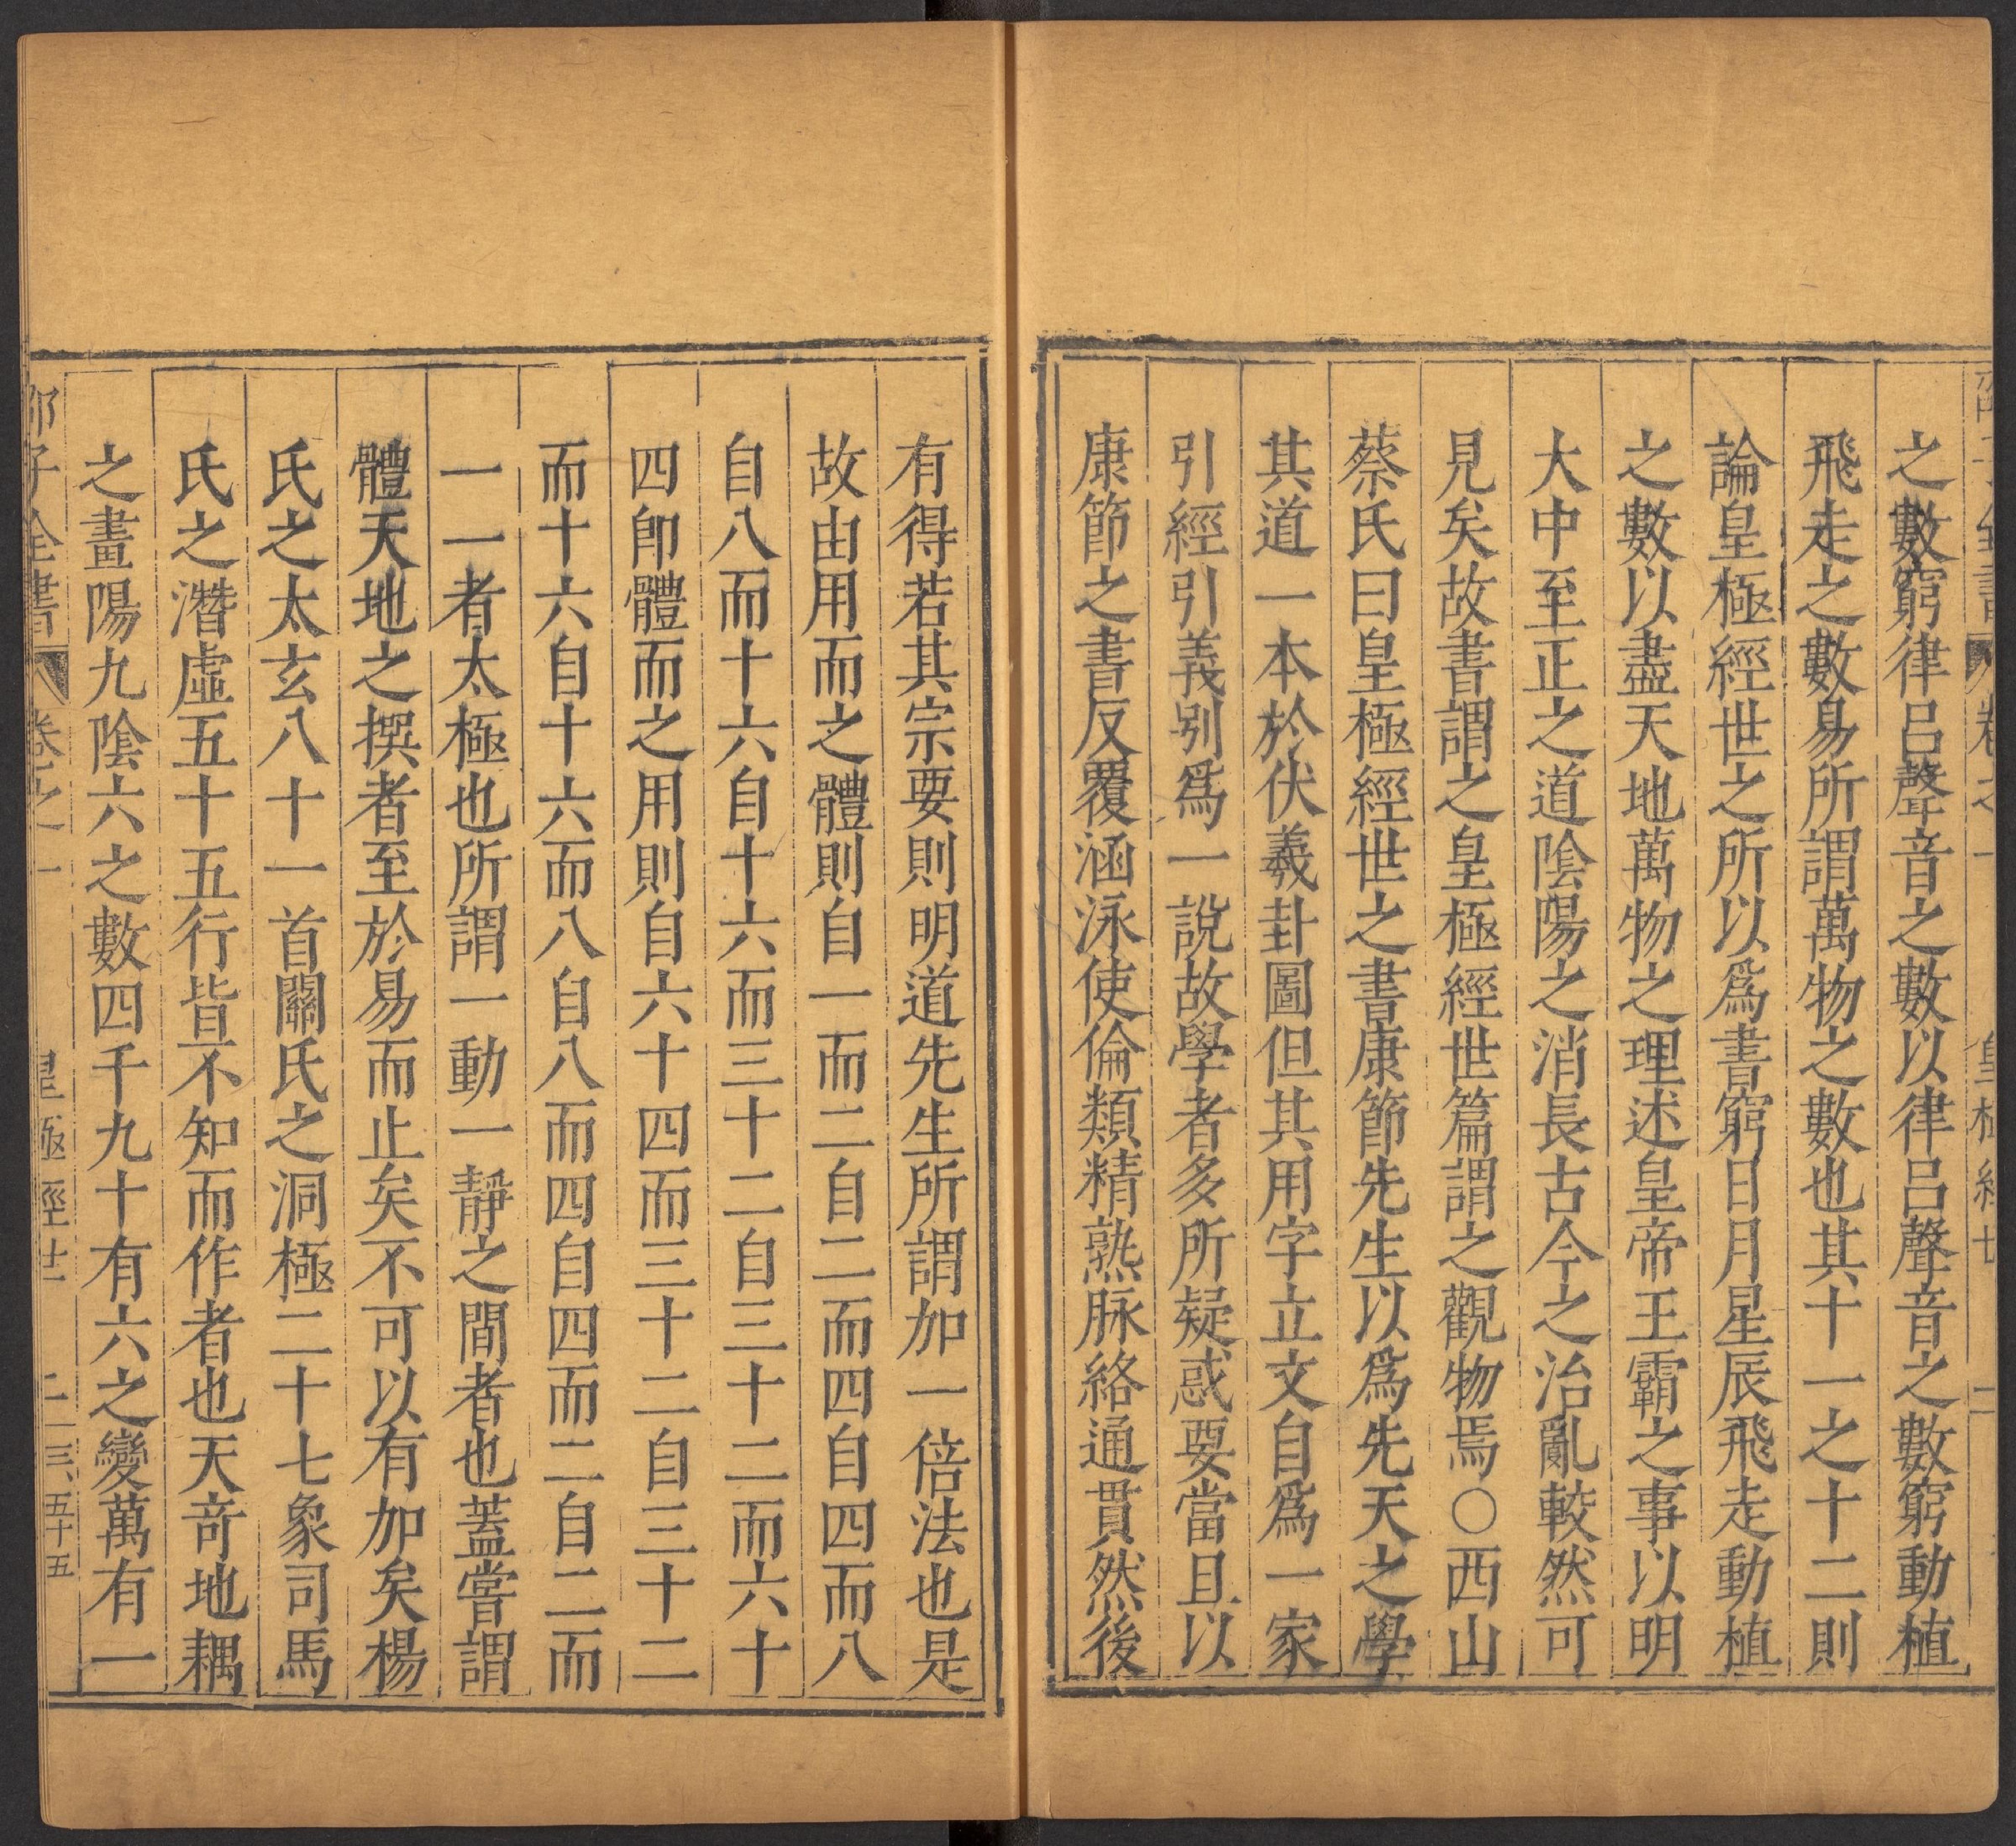 之數窮律呂聲音之數以律呂聲音之數窮動植
飛走之數易所謂萬物之數也其十一之十二則
論皇極經世之所以爲書窮日月星辰飛走動植
之數以盡天地萬物之理述皇帝王霸之事以明
大中至正之道陰陽之消長古今之治亂較然可
見矣故書謂之皇極經世篇謂之觀物焉○西山
蔡氏曰皇極經世之書康節先生以爲先天之學
其道一本於伏羲卦圖但其用字立文自爲一家
引經引義別爲一說故學者多所疑惑要當且以
康節之書反覆涵泳使倫類精熟脉絡通貫然後
有得若其宗要則明道先生所謂加一倍法也是
故由用而之體則自一而二自二而四自四而八
自八而十六自十六而三十二自三十二而六十
四卽體而之用則自六十四而三十二自三十二
而十六自十六而八自八而四自四而二自二而
一一者太極也所謂一動一靜之間者也蓋嘗謂
體天地之撰者至於易而止矣不可以有加矣楊
氏之太玄八十一首關氏之洞極二十七象司馬
氏之潛虛五十五行皆不知而作者也天奇地耦
之畫陽九陰六之數四千九十有六之變萬有一
子全書 卷之一 皇極經世 二 三、五十五